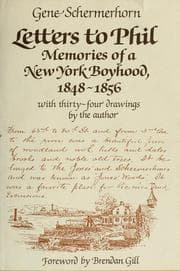 Gene Schermerhorn
Letters to Phil
Memories of a
New York Boyhood,
1848-1856
with thirty-four drawings
by the author
From 65th to 70th St and from 3rd Ave
to the river was a beautiful piece
of woodland with hills and dales
brooks and noble old trees. It be
longed to the Jones and Schermerhorns
and was known as Jones' Woods. It
was a favorite place for Picnics and
Excursions.
Foreword by Brendan Gill